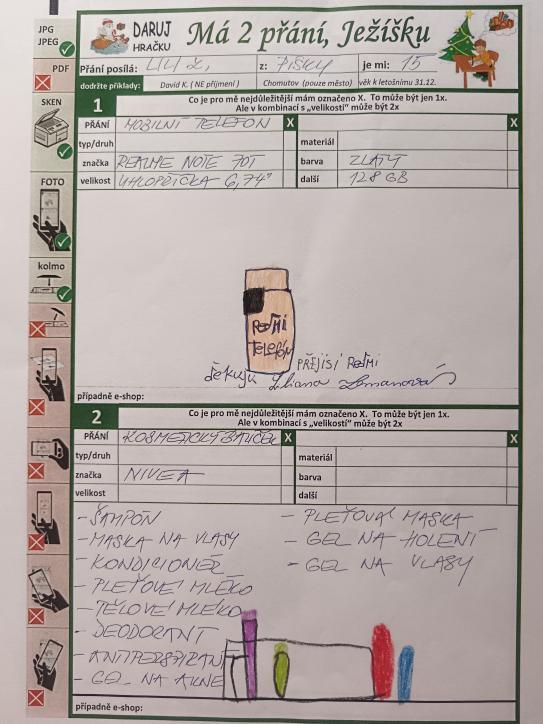 JPG
JPEG
PDF
SKEN
FOTO
kolmo
DARUJ
HRAČKU
Má 2 přání, Ježíšku
Přání posílá: LILI Z. z: PÍŠKY je mi: 15
dodržte příklady: David K. ( NE příjmení ) Chomutov (pouze město) věk k letošnímu 31.12.
1 Co je pro mě nejdůležitější mám označeno X. To může být jen 1x.
Ale v kombinaci s „velikostí“ může být 2x
PŘÁNÍ MOBILNÍ TELEFON X X
typ/druh materiál
značka REALME NOTE 70T barva ZLATÝ
velikost UHLOPŘÍČKA 6,74" další 128 GB
TELEFÓN
děkuju Liliana
případně e-shop:
2 Co je pro mě nejdůležitější mám označeno X. To může být jen 1x.
Ale v kombinaci s „velikostí“ může být 2x
PŘÁNÍ KOSMETICKÝ BALÍČEK X X
typ/druh: materiál
značka NIVEA barva
velikost další
- ŠAMPÓN - PLEŤOVÁ MASKA
- MASKA NA VLASY - GEL NA HOLENÍ
- KONDICIONÉR - GEL NA VLASY
- PLEŤOVÉ MLÉKO
- TĚLOVÉ MLÉKO
- DEODORANT
- ANTIPERSPIRANT
- GEL NA AKNÉ
případně e-shop: